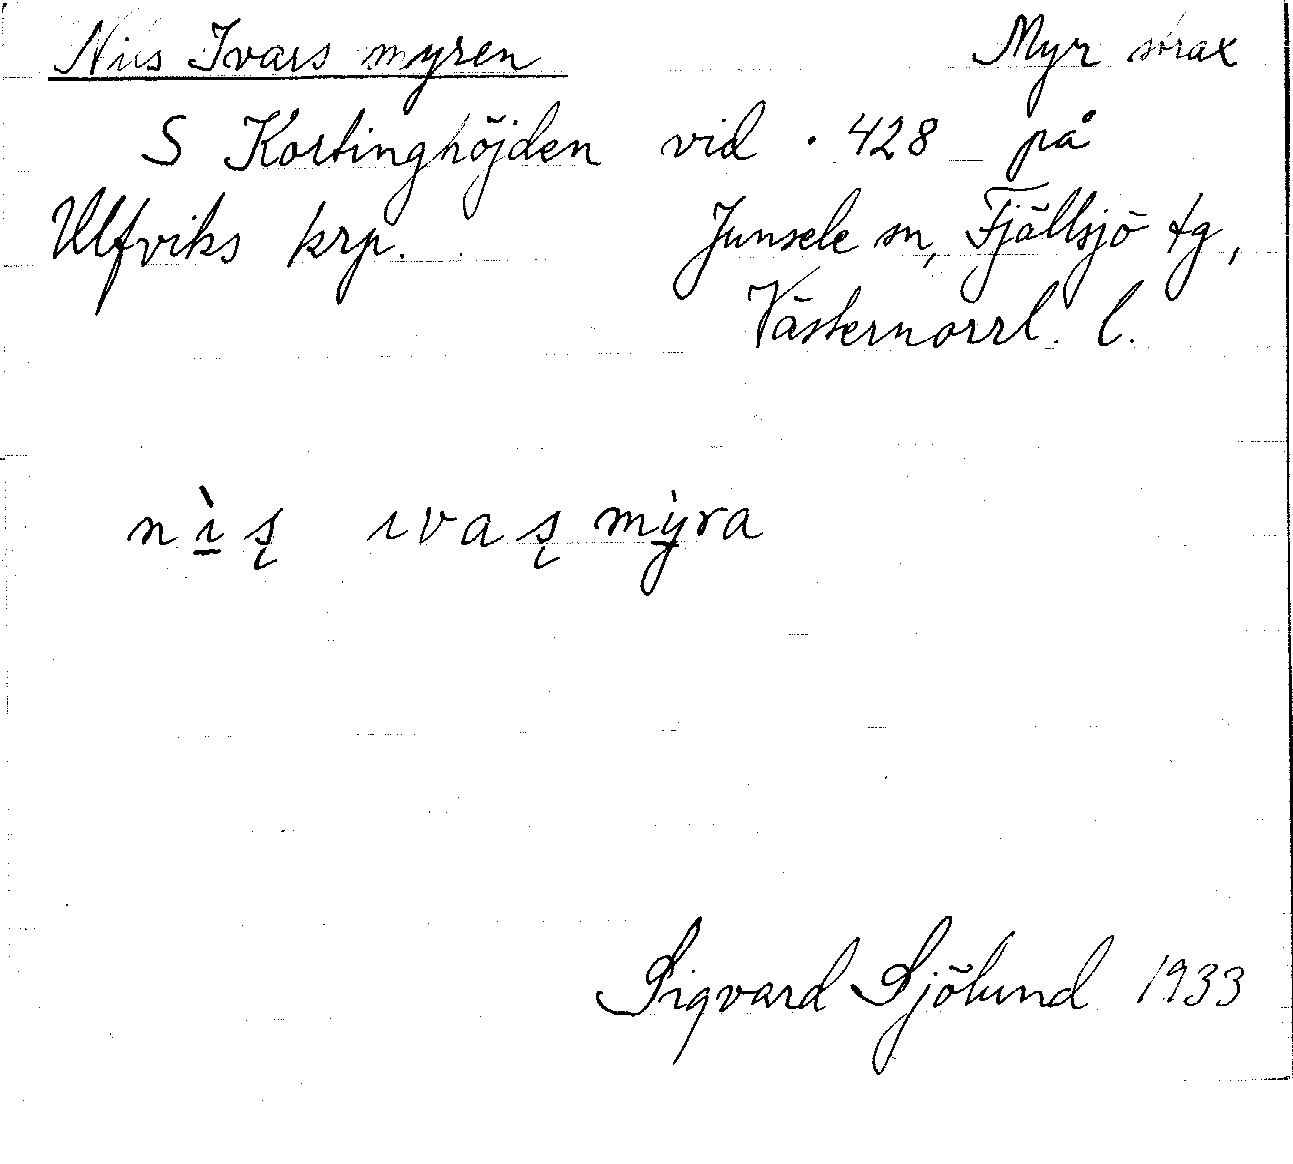 Nils Ivars myren Myr sv.ax
S Kortinghöjden vid · 428 på
Ulfviks krp. Junsele sn, Fjällsjö tg,
Västernorrl. l.
nı̠̀s̨ ıvas̨ mỳ̠ra
Sigvard Sjölund 1933